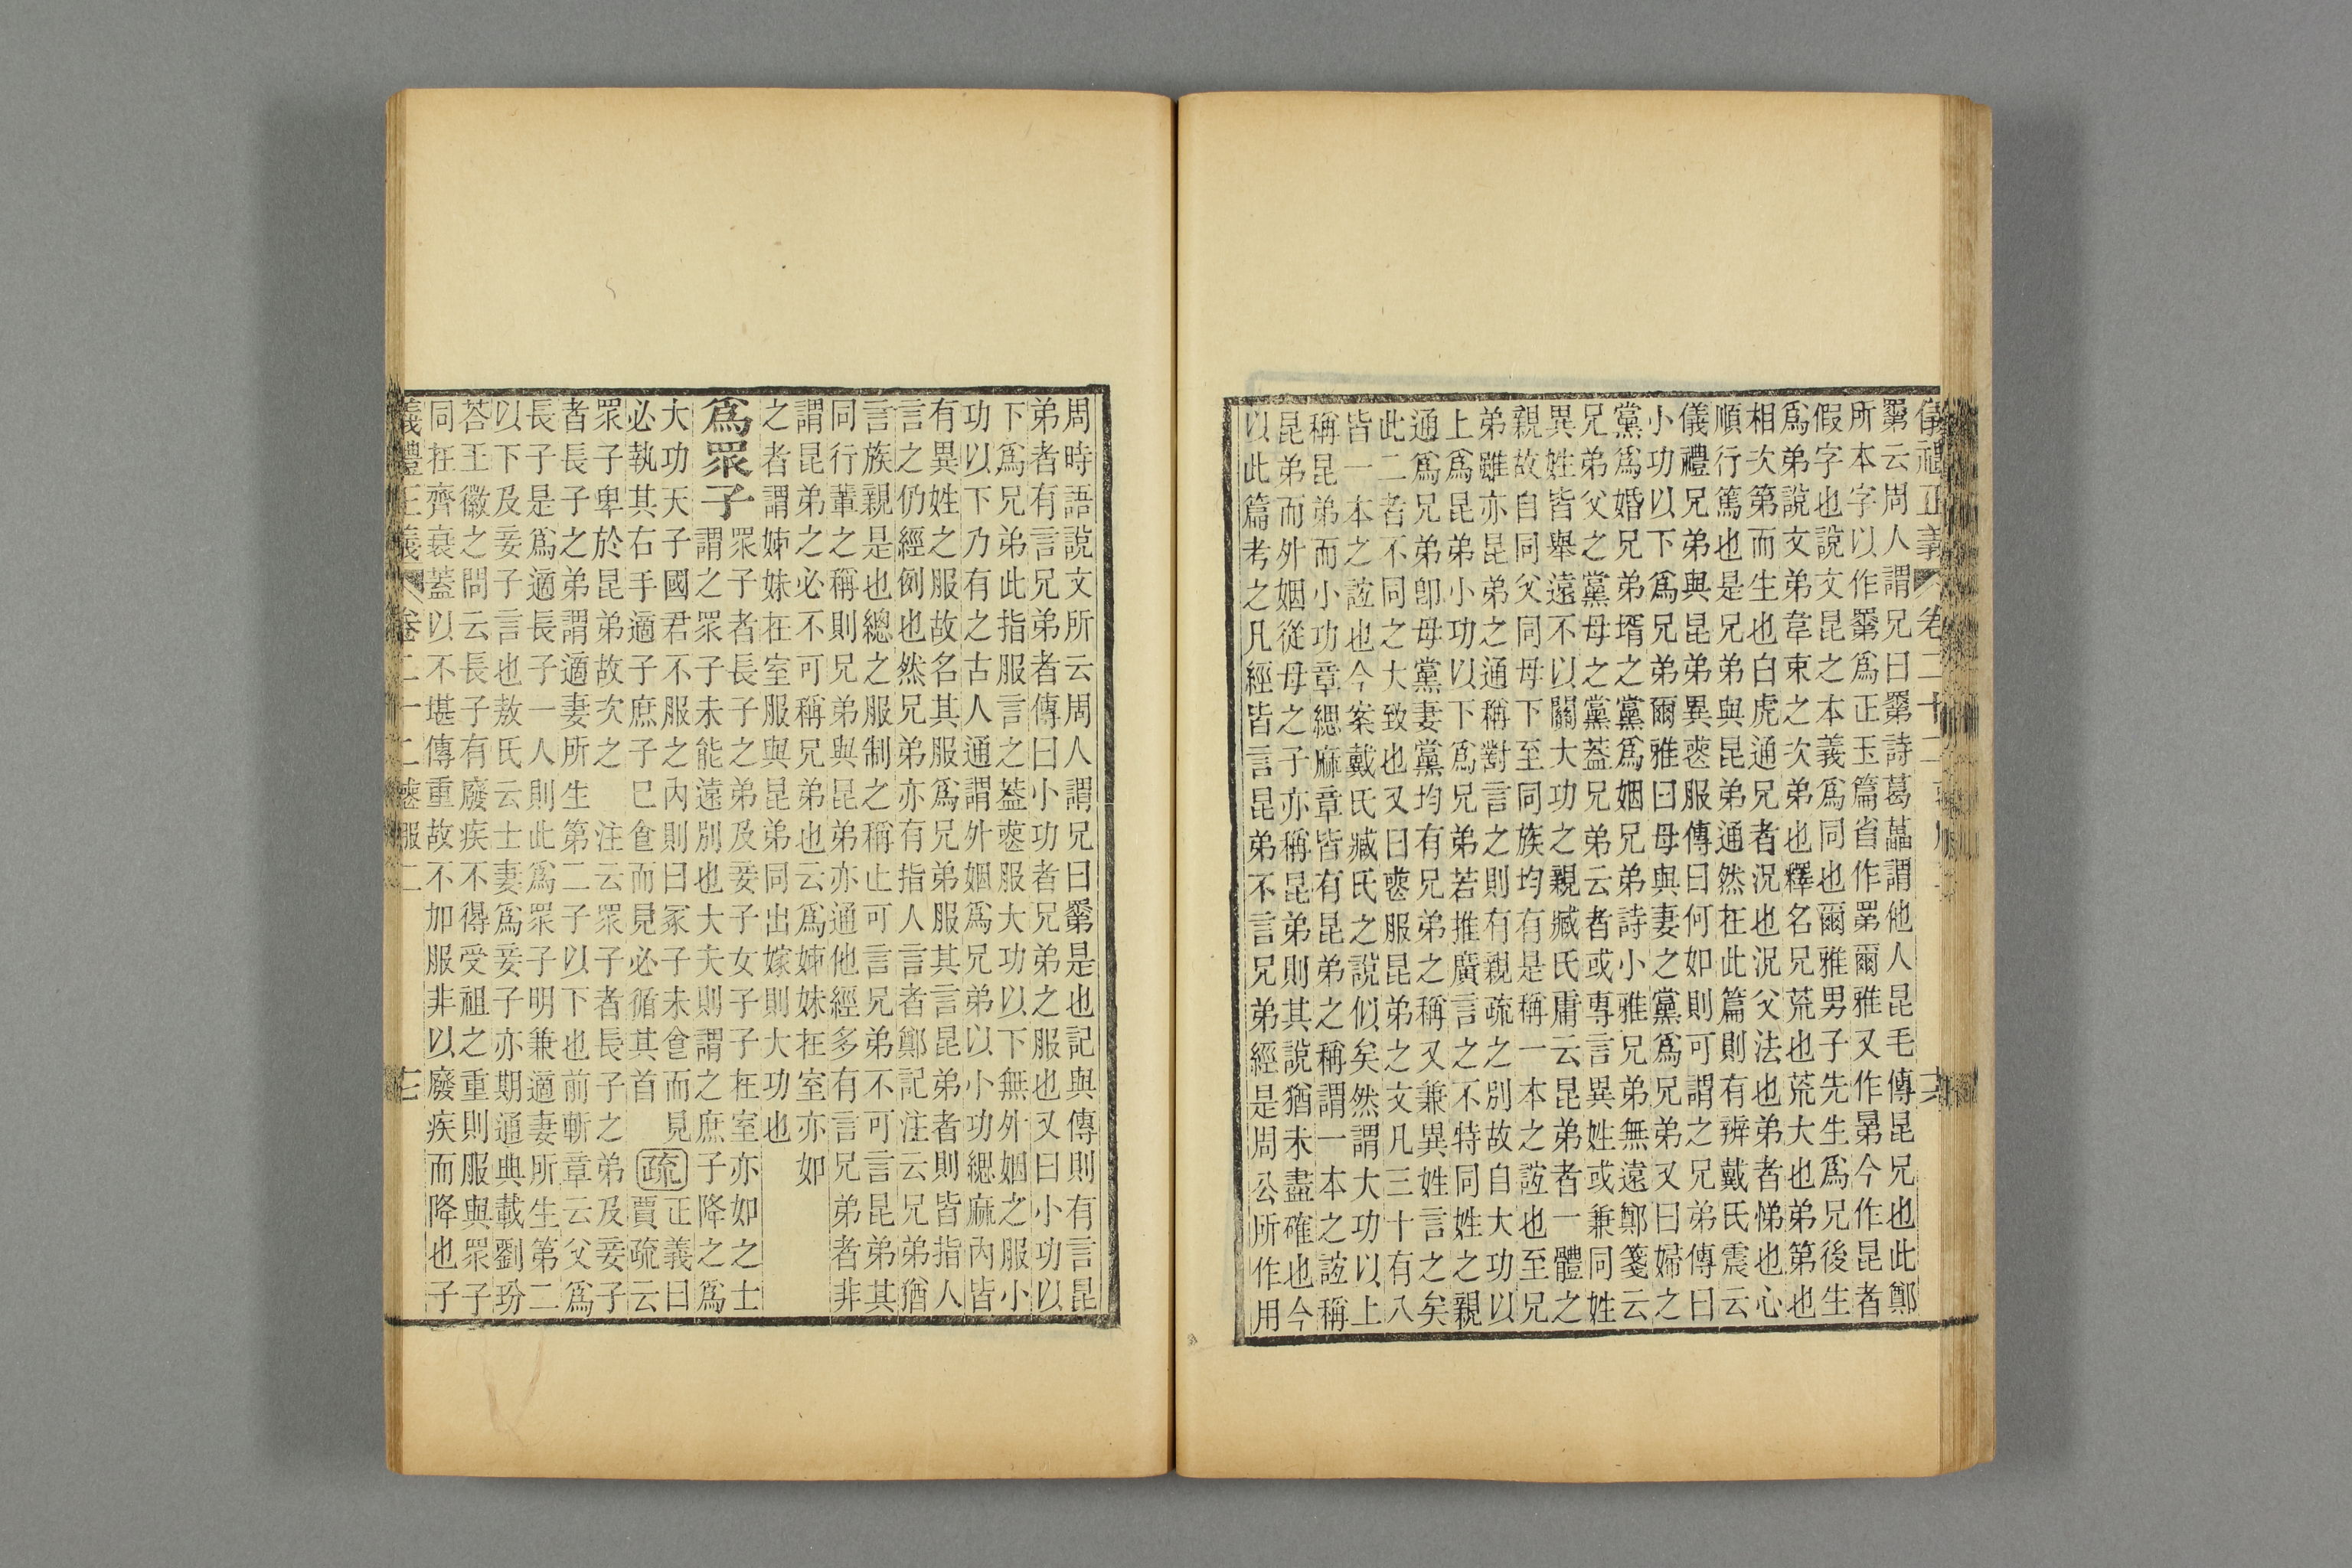 儀禮正義 卷二十二
𥊽云周人謂兄曰𥊽詩葛藟謂他人昆毛傳昆兄也此鄭
所本字以作𥊽爲正玉篇省作罤爾雅又作晜今作昆者
假字也說文昆之本義爲同也爾雅男子先生爲兄後生
爲弟說文弟韋束之次弟也釋名兄荒也荒大也弟第也
相次第而生也白虎通兄者況也況父法也弟者悌也心
順行篤也是兄弟與昆弟通然在此篇則有辨戴氏震云
儀禮兄弟與昆弟異喪服傳曰何如則可謂之兄弟傳曰
小功以下爲兄弟爾雅曰母與妻之黨爲兄弟又曰婦之
黨爲婚兄弟壻之黨爲姻兄弟詩小雅兄弟無遠鄭箋云
兄弟父之黨母之黨蓋兄弟云者或專言異姓或兼同姓
異姓皆舉遠不以關大功之親臧氏庸云昆弟者一體之
親故自同父同母下至同族均有是稱一本之誼也至兄
弟雖亦昆弟之通稱對言之則有親疏之別故自大功以
上爲昆弟小功以下爲兄弟若推廣言之不特同姓之親
通爲兄弟卽母黨妻黨均有兄弟之稱又兼異姓言之矣
此二者不同之大致也又曰喪服昆弟之文凡三十有八
皆一本之誼也今案戴氏臧氏之說似矣然謂大功以上
稱昆弟而小功章緦麻章皆有昆弟之稱謂一本之誼稱
昆弟而外姻從母之子亦稱昆弟則其說猶未盡確也今
以此篇考之凡經皆言昆弟不言兄弟經是周公所作用
周時語說文所云周人謂兄曰𥊽是也記與傳則有言昆
弟者有言兄弟者傳曰小功者兄弟之服也又曰小功以
下爲兄弟此指服言之葢喪服大功以下無外姻之服小
功以下乃有之古人通謂外姻爲兄弟以小功緦麻內皆
有異姓之服故名其服爲兄弟服其言昆弟者則皆指人
言之仍經例也然兄弟亦有指人言者鄭記注云兄弟猶
言族親是也總之服制之稱止可言兄弟不可言昆弟其
同行輩之稱則兄弟與昆弟亦通他經多有言兄弟者非
謂昆弟之必不可稱兄弟也云爲姊妹在室亦如
之者謂姊妹在室服與昆弟同出嫁則大功也
爲眾子
眾子者長子之弟及妾子女子子在室亦如之士
謂之眾子未能遠別也大夫則謂之庶子降之爲
大功天子國君不服之內則曰冢子未食而見
必執其右手適子庶子已食而見必循其首
疏
正義曰
賈疏云
眾子卑於昆弟故次之 注云眾子者長子之弟及妾子
者長子之弟謂適妻所生第二子以下也前斬章云父爲
長子是爲適長子一人則此爲眾子明兼適妻所生第二
以下及妾子言也敖氏云士妻爲妾子亦期通典載劉玢
荅王徽之問云長子有廢疾不得受祖之重則服與眾子
同在齊衰葢以不堪傳重故不加服非以廢疾而降也子